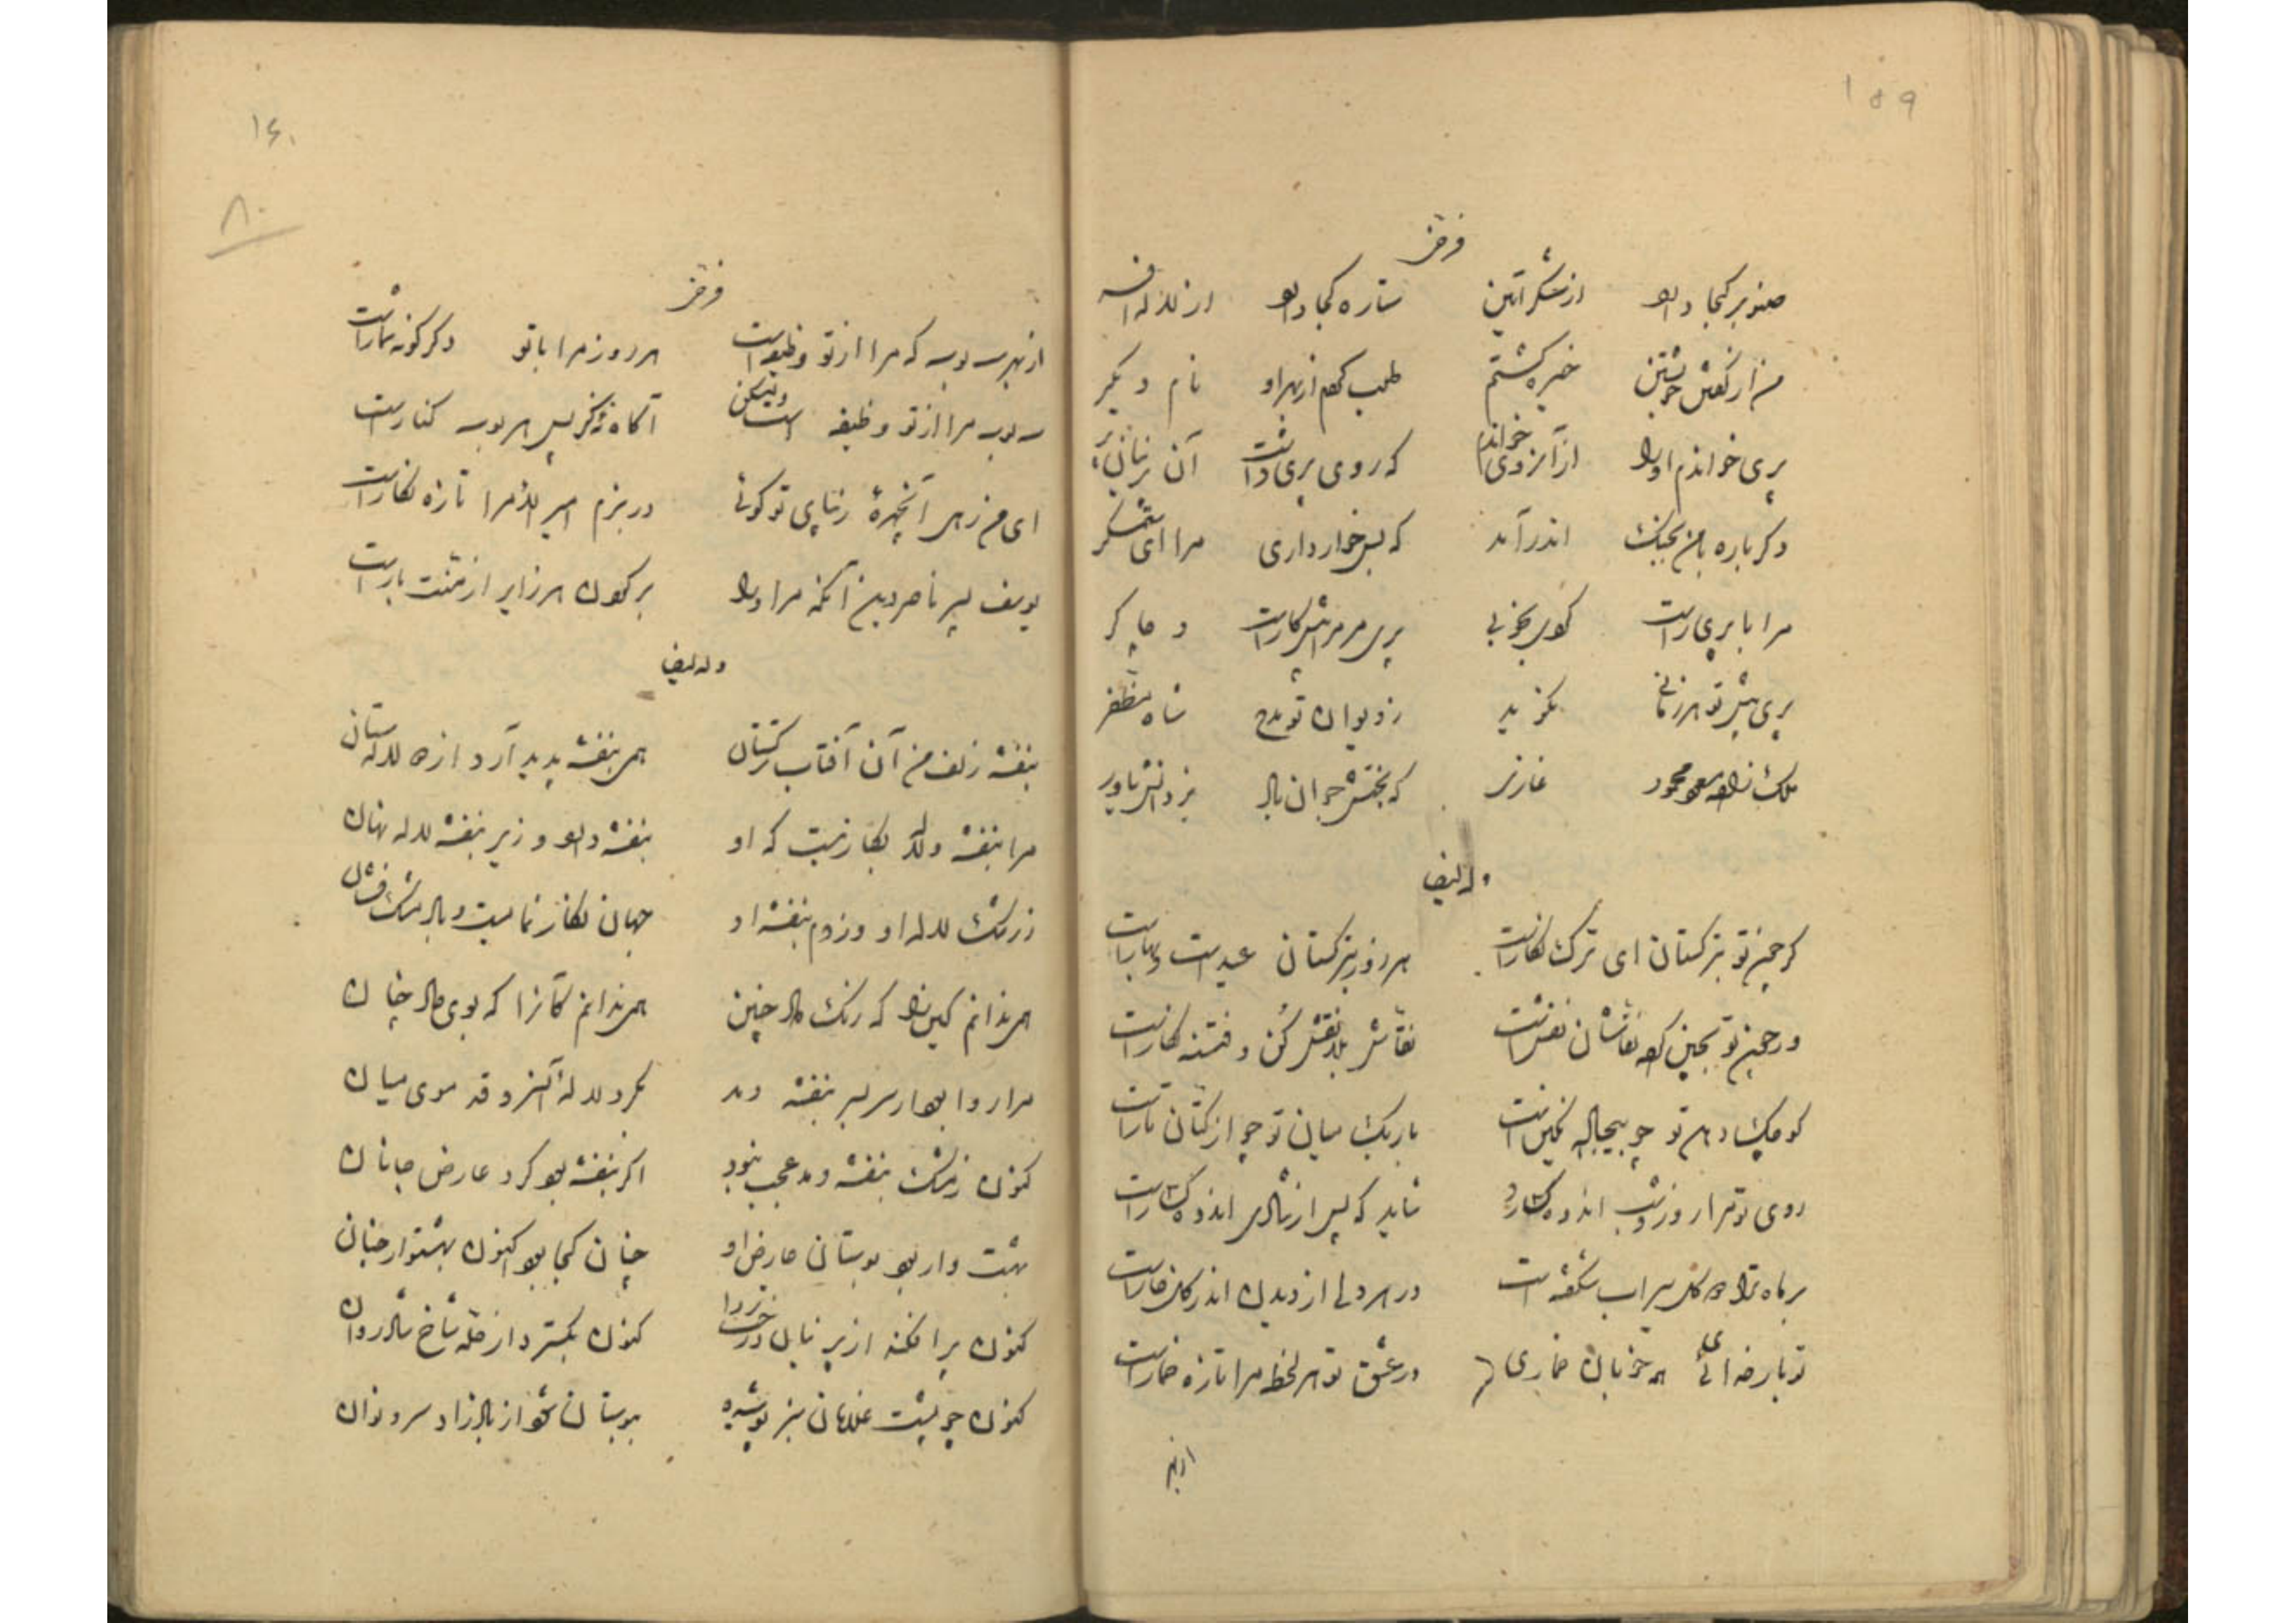 ۱۵۹
فرخی
صنوبر کجا دارد از مشک آتین ستاره کجا دارد از لاله افسر
من از گفتن خویشتن خیره گشتم طلب کردم از بهر او نام دیگر
پری خواندم او را از آنروی خواندم که روی پری داشت آن
دگرباره با من بجنگ اندر آمد که بس خوار داری مرا ای ستمگر
مرا با پری راست کردی بخوبی پری مر مرا پیشکارست و چاکر
پری پیش تو هر زمانی نگوید ز دیوان تو مدح شاه مظفر
ملک زاده مسعود محمود غازی که بختش جوان باد یزدانش یاور
وله ایضا
گر چین تو بترکستان ای ترک نگارست هر روز بترکستان عید است و بهارست
ور چین تو بچین کرده نقاشان نقش است نقاش بلا نقش کن و فتنه نگارست
کوچک دهن تو چو یکی نگین است باریک میان تو چو از کتان تارست
روی تو مرا روز و شب اندوه گسارد شاید که پس از شادی اندوه گسارست
بر ماه ترا گل سیراب شکفته است در هر دلی از دیدن اندر گل خارست
تو بار خدای همه خوبان خماری در عشق تو هر لحظه مرا تازه خمارست
از بهر
۱۶۰
۸۰
فرخی
از بهر سه بوسه که مرا از تو وظیفه است هر روز مرا با تو دگرگونه شمارست
سه بوسه مرا از تو وظیفه است ولیکن آگاه نه کز پس هر بوسه کنارست
ای من رهی آنچهره زیبای تو گوئی در بزم امیر الامرا تازه نگارست
یوسف پسر ناصر دین آنکه مر او را بر گردن هر زایر از منت بارست
وله ایضا
بنفشه زلف من آن آفتاب ترکستان همی بنفشه پدید آرد از دو لاله ستان
مرا بنفشه و لاله بکار نیست که او بنفشه دارد و زیر بنفشه لاله نهان
ز رنگ لاله او وز دم بنفشه او جهان نگار نمایست و باد مشک فشان
همی ندانم کاین را که رنگ داد چنین همی ندانم کانرا که بوی داد چنان
مرا روا بود ار سر بسر بنفشه دمد بگرد لاله آن سرو قد موی میان
کنون ز مشک بنفشه دمد عجب نبود اگر بنفشه بود گرد عارض جانان
بهشت وار بود بوستان عارض او چنان کجا بود اکنون بهشتوار جنان
کنون برافکند از پرنیان درخت ردا کنون بگسترد از حله شاخ شادروان
کنون چو پشت غلامان سبز پوشیده ببوستان شود از باد زاد سرو نوان